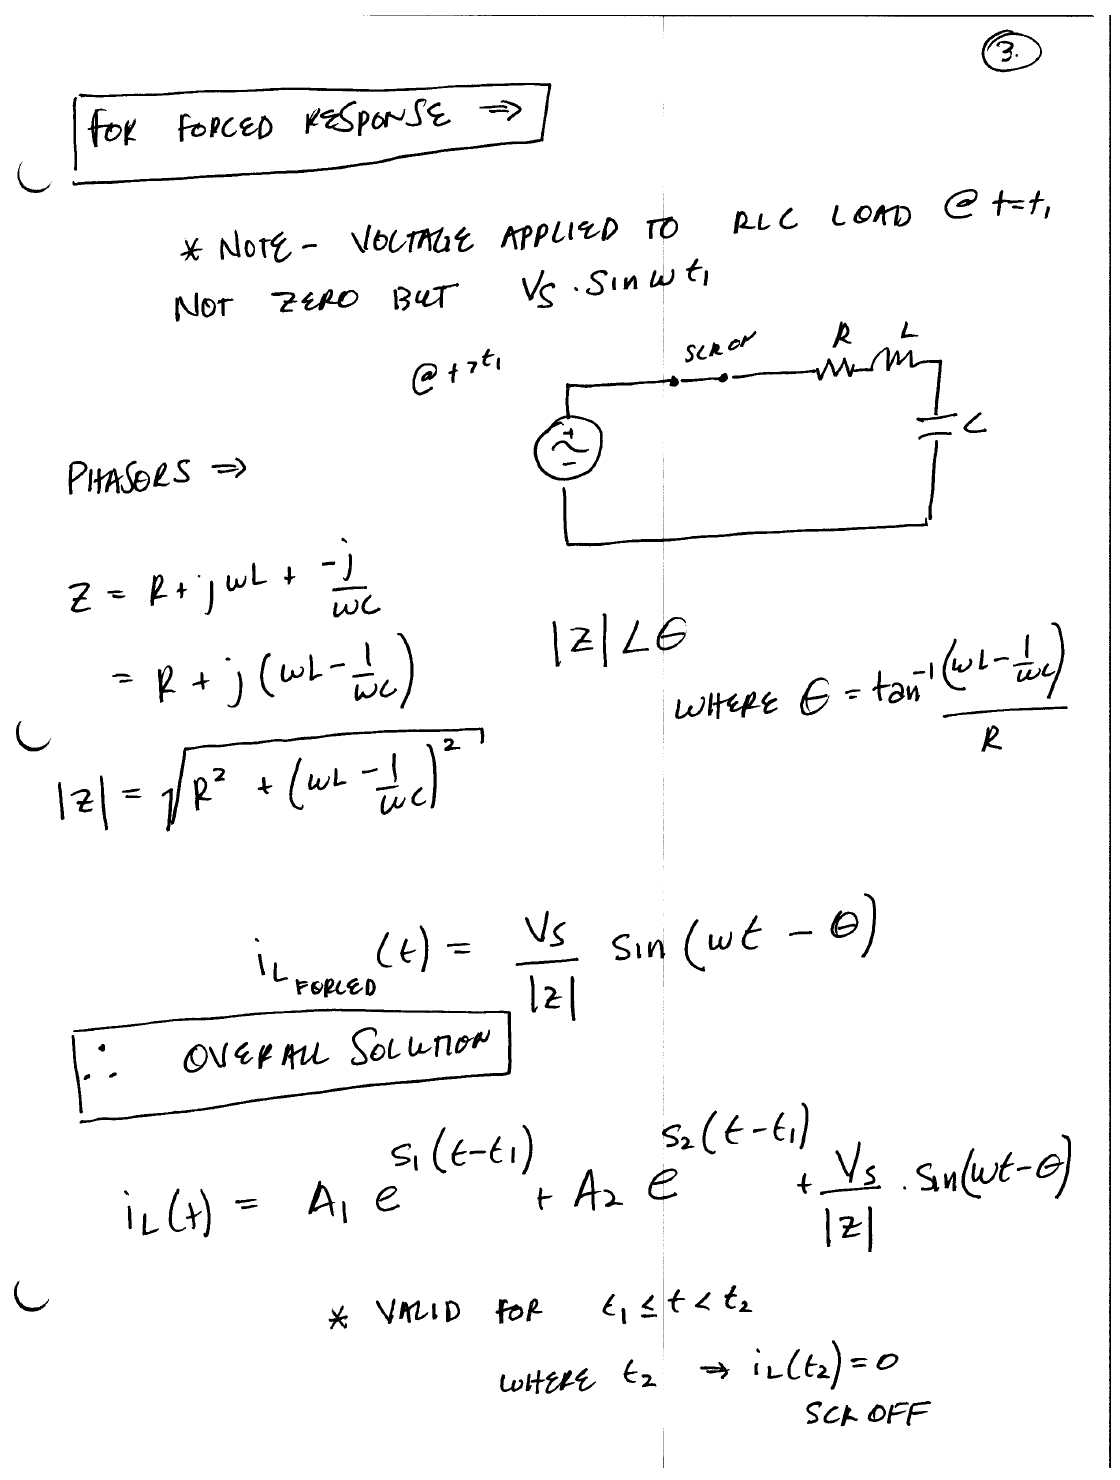 3.
FOR FORCED RESPONSE ⇒
* NOTE - VOLTAGE APPLIED TO RLC LOAD @ t=t₁
NOT ZERO BUT Vs · Sin ω t₁
@ t > t₁
SCR ON
R L
+
-
C
PHASORS ⇒
Z = R + jωL + -j/ωC
= R + j(ωL - 1/ωC)
|Z| ∠θ
WHERE θ = tan⁻¹ (ωL - 1/ωC) / R
|Z| = √(R² + (ωL - 1/ωC)²)
i_L FORCED (t) = Vs/|Z| sin (ωt - θ)
∴ OVERALL SOLUTION
i_L(t) = A₁ e^{s₁(t-t₁)} + A₂ e^{s₂(t-t₁)} + Vs/|Z| · Sin(ωt-θ)
* VALID FOR t₁ ≤ t < t₂
WHERE t₂ ⇒ i_L(t₂) = 0
SCR OFF